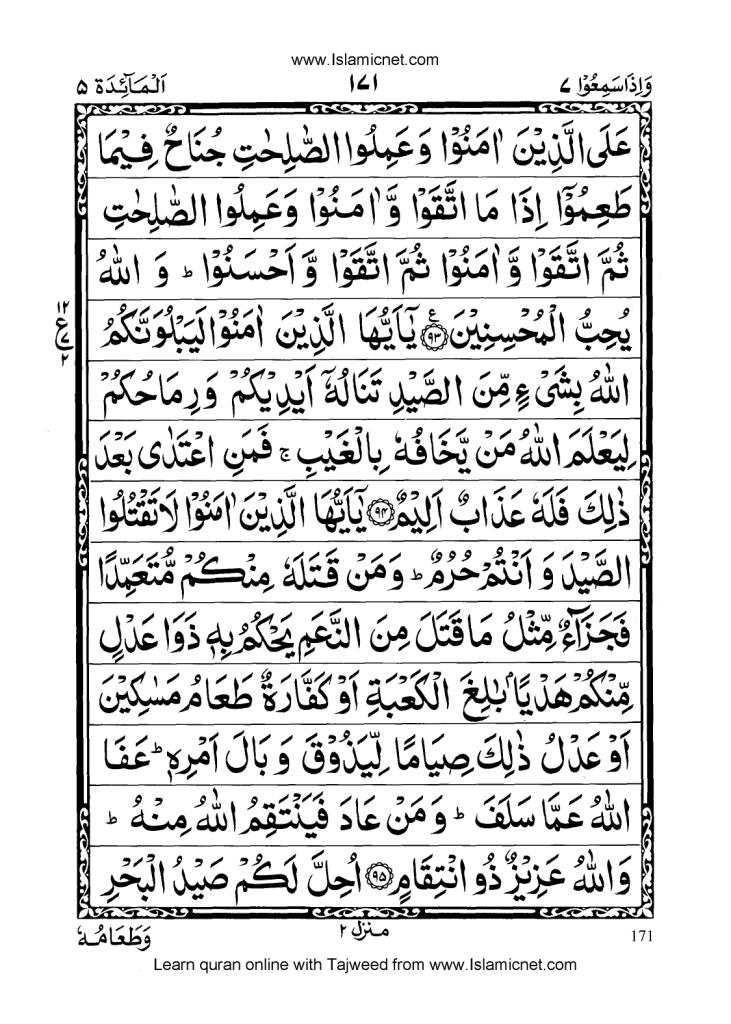 www.Islamicnet.com
وَاِذَا سَمِعُوْا ۷ ۱۷۱ اَلْمَآئِدَة ۵
عَلَى الَّذِيْنَ اٰمَنُوْا وَعَمِلُوا الصّٰلِحٰتِ جُنَاحٌ فِيْمَا
طَعِمُوْۤا اِذَا مَا اتَّقَوْا وَّاٰمَنُوْا وَعَمِلُوا الصّٰلِحٰتِ
ثُمَّ اتَّقَوْا وَّاٰمَنُوْا ثُمَّ اتَّقَوْا وَّاَحْسَنُوْا ؕ وَ اللّٰهُ
يُحِبُّ الْمُحْسِنِيْنَ ۹۳ ع يٰۤاَيُّهَا الَّذِيْنَ اٰمَنُوْا لَيَبْلُوَنَّكُمُ
۱۲
ع
۷
۲
اللّٰهُ بِشَىْءٍ مِّنَ الصَّيْدِ تَنَالُهٗۤ اَيْدِيْكُمْ وَرِمَاحُكُمْ
لِيَعْلَمَ اللّٰهُ مَنْ يَّخَافُهٗ بِالْغَيْبِ ۚ فَمَنِ اعْتَدٰى بَعْدَ
ذٰلِكَ فَلَهٗ عَذَابٌ اَلِيْمٌ ۹۴ يٰۤاَيُّهَا الَّذِيْنَ اٰمَنُوْا لَا تَقْتُلُوا
الصَّيْدَ وَ اَنْتُمْ حُرُمٌ ؕ وَمَنْ قَتَلَهٗ مِنْكُمْ مُّتَعَمِّدًا
فَجَزَآءٌ مِّثْلُ مَا قَتَلَ مِنَ النَّعَمِ يَحْكُمُ بِهٖ ذَوَا عَدْلٍ
مِّنْكُمْ هَدْيًاۢ بٰلِغَ الْكَعْبَةِ اَوْ كَفَّارَةٌ طَعَامُ مَسٰكِيْنَ
اَوْ عَدْلُ ذٰلِكَ صِيَامًا لِّيَذُوْقَ وَبَالَ اَمْرِهٖ ؕ عَفَا
اللّٰهُ عَمَّا سَلَفَ ؕ وَ مَنْ عَادَ فَيَنْتَقِمُ اللّٰهُ مِنْهُ ؕ
وَاللّٰهُ عَزِيْزٌ ذُو انْتِقَامٍ ۹۵ اُحِلَّ لَكُمْ صَيْدُ الْبَحْرِ
171 منزل ۲ وَطَعَامُهٗ
Learn quran online with Tajweed from www.Islamicnet.com